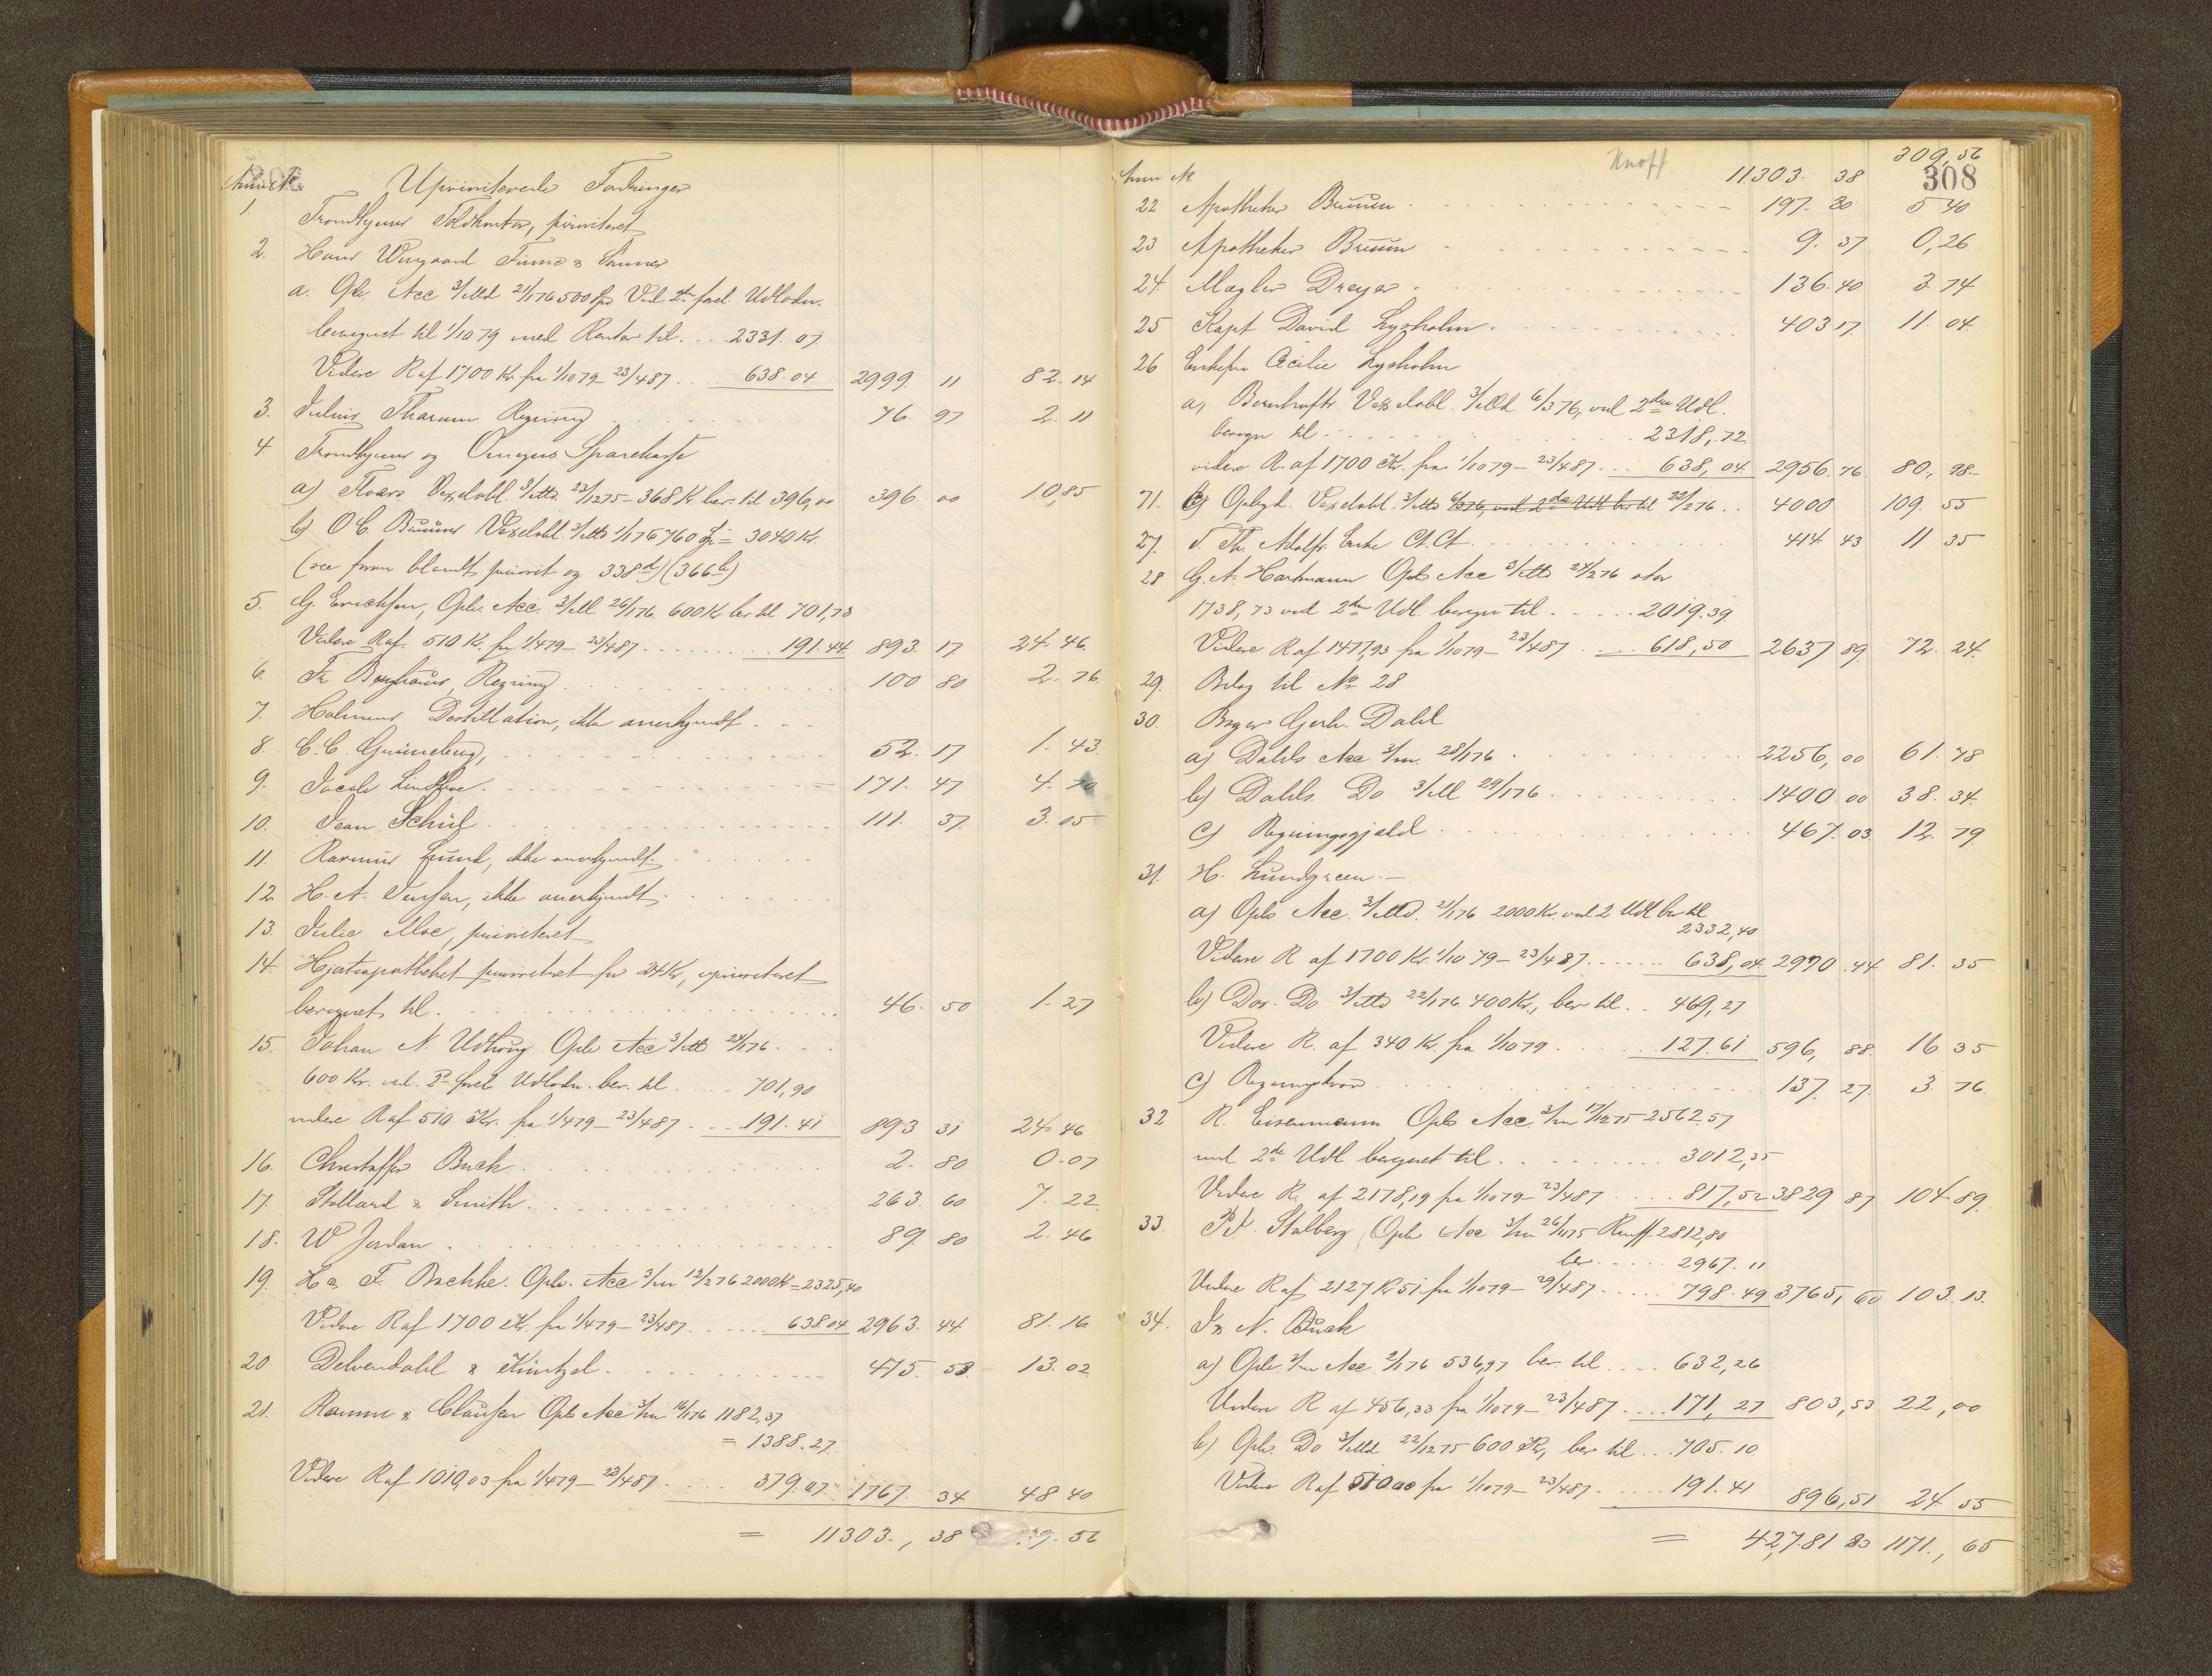 Anm No Uprioriterede Fordringer
1. Trondhjems Toldkontor, prioriteret
2. Hans Wingaard Finne & Sønner
a. Opb. Acc 3/Md 21/1 76 500 Spd Ved 2den forel. Udlodn.
beregnet til 1/10 79 med Renter til ... 2331. 07
Videre R af 1700 Kr. fra 1/10 79 - 23/4 87 .. 638.04 2999. 11 82.14
3. Julius Tharum Regning 76. 97 2. 11
4 Trondhjems og Omegns Sparekasse
a) Vexelobl. 3/Mds 23/12 75 - 368 Kr. ber. til 396,00 396. 00 10,85
b) O C. Vexelobl. 3/Mds 1/1 76 760 Sp = 3040 Kr.
(see foran blandt priorit og 338 d) (366 b)
5. G. Erichsen, Opb. Acc. 3/Md. 26/1 76. 600 Kr ber til 701,73
Videre R af. 510 Kr. fra 1/4 79 - 23/4 87 ... 191.44 893. 17 24. 46
6. Fr. Regning ... 100 80 2. 76.
7. Holmens Destillation, ikke anerkjendt
8. C. C. Grüneberg, ... 52. 17 1. 43.
9. Jacob Lindboe. ... = 171. 47 4. 70
10. Jean Schül ... 111. 37. 3. 05
11. Rasmus Lund, ikke anerkjendt.
12 H. A. Jensen, ikke anerkjendt.
13. Julie Moe, prioriteret
14. Hjorteapotheket prioriteret for 24 Kr, uprioriteret
beregnet til. ... 46. 50 1. 27
15. Johan N. Udhoug Opb Acc 3/Md 24/1 76
600 Kr. ved. 2 forel. Udlodn. ber. til ... 701,90
videre R af 510 Kr. fra 1/4 79 - 23/4 87 - ... 191. 41 893 31 24 46
16. Christoffer Buck. ... 2. 80 0.07
17. Stallard & Smith. ... 263. 60 7. 22.
18. W Jordan. ... 89. 80 2. 46
19. H & F. Opb. Acc 3/m 12/2 76 2000 Kr = 2325,40
Videre R af 1700 Kr. fra 1/4 79 - 23/4 87. ... 638.04 2963. 44 81. 16
20 Delvendahl & Küntzel. ... 475. 53 13. 02
21. Ramm & Clausen Opb Acc 3/m 16/1 76 1182,37
= 1388.27.
Videre R af 1010,03 fra 1/4 79 - 23/4 87. ... 379.07. 1767. 34 48 40
= 11303., 38 09. 56
Anm No Knoff 11303. 38 309,56
308
22 Apotheker Bruun ... 197. 30 5 40
23 Apotheker Bruun ... 9. 37 0,26
24. Mægler Dreyer. ... 136. 40 3. 74
25 Kapt David Lysholm. ... 403 17. 11. 04.
26 Enkefru Cecilie Lysholm
a, Vexelobl. 3/Md 6/3 76, ved 2den Udl.
beregn til. ... 2318,72
videre R. af 1700 Kr. fra 1/10 79 - 23/4 87 ... 638,04 2956. 76. 80., 98.-
71. Vexelobl. 3/Mds 6/3 76, ved 2de Udl ber til 22/2 76 .. 4000 109. 55
27. Enke Ct. Ct. ... 414. 43 11 35
28 G. A. Hartmann Opb Acc 3/Mds 24/2 76 stor
1738,73 ved 2den Udl. beregn til. ... 2019.39.
Videre R af 1477,93 fra 1/10 79 - 23/4 87. ... 618,50 2637 89. 72. 24.
29. Bilag til No 28
30. Gerh. Dahl
a) Dahls Acc 3/m. 28/1 76 ... 2256,00 61. 78
b) Dahls. Do 3/Md 29/1 76. ... 1400.00 38. 34.
C) Regningsgjæld ... 467. 03. 12. 79.
31. H. Lundgreen. -
a) Opb Acc. 3/Md. 21/1 76 2000 Kr. ved 2 Udl ber til
2332,40
Videre R af 1700 Kr. 1/10 79 - 23/4 87. ... 638,04 2970. 44 81. 35
b) Do. Do 3/Mds 22/1 76. 400 Kr., ber til. . 469,27
Videre R. af 340 Kr. fra 1/10 79 ... 127. 61 596, 88. 16 35
C) ... 137. 27. 3. 76.
32 R. Eisenmann Opb Acc. 3/m 17/12 75 2562.57
ved 2de Udl beregnet til. ... 3012,35
Videre R. af 2178,19 fra 1/10 79 - 23/4 87 ... 817,52 3829 87 104.89.
33. Stalberg Opb Acc 3/m 26/11 75 2812,80
ber ... 2967. 11
Videre R af 2127 Kr 51 fra 1/10 79 - 29/4 87. ... 798. 49 3765, 60 103. 13.
34. N. Buck
a) Opb. 3/m Acc 2/1 76 536,97 ber. til ... 632,26
Videre R af 456,33 fra 1/10 79 - 23/4 87 ... 171, 27 803,53 22,00
b) Opb. Do 3/Md. 22/12 75 600 Kr, ber til ... 705. 10
Videre R af 510 00 fra 1/10 79 - 23/4 87. ... 191.41 896,51 24. 55
= 427.81 83 1171., 65